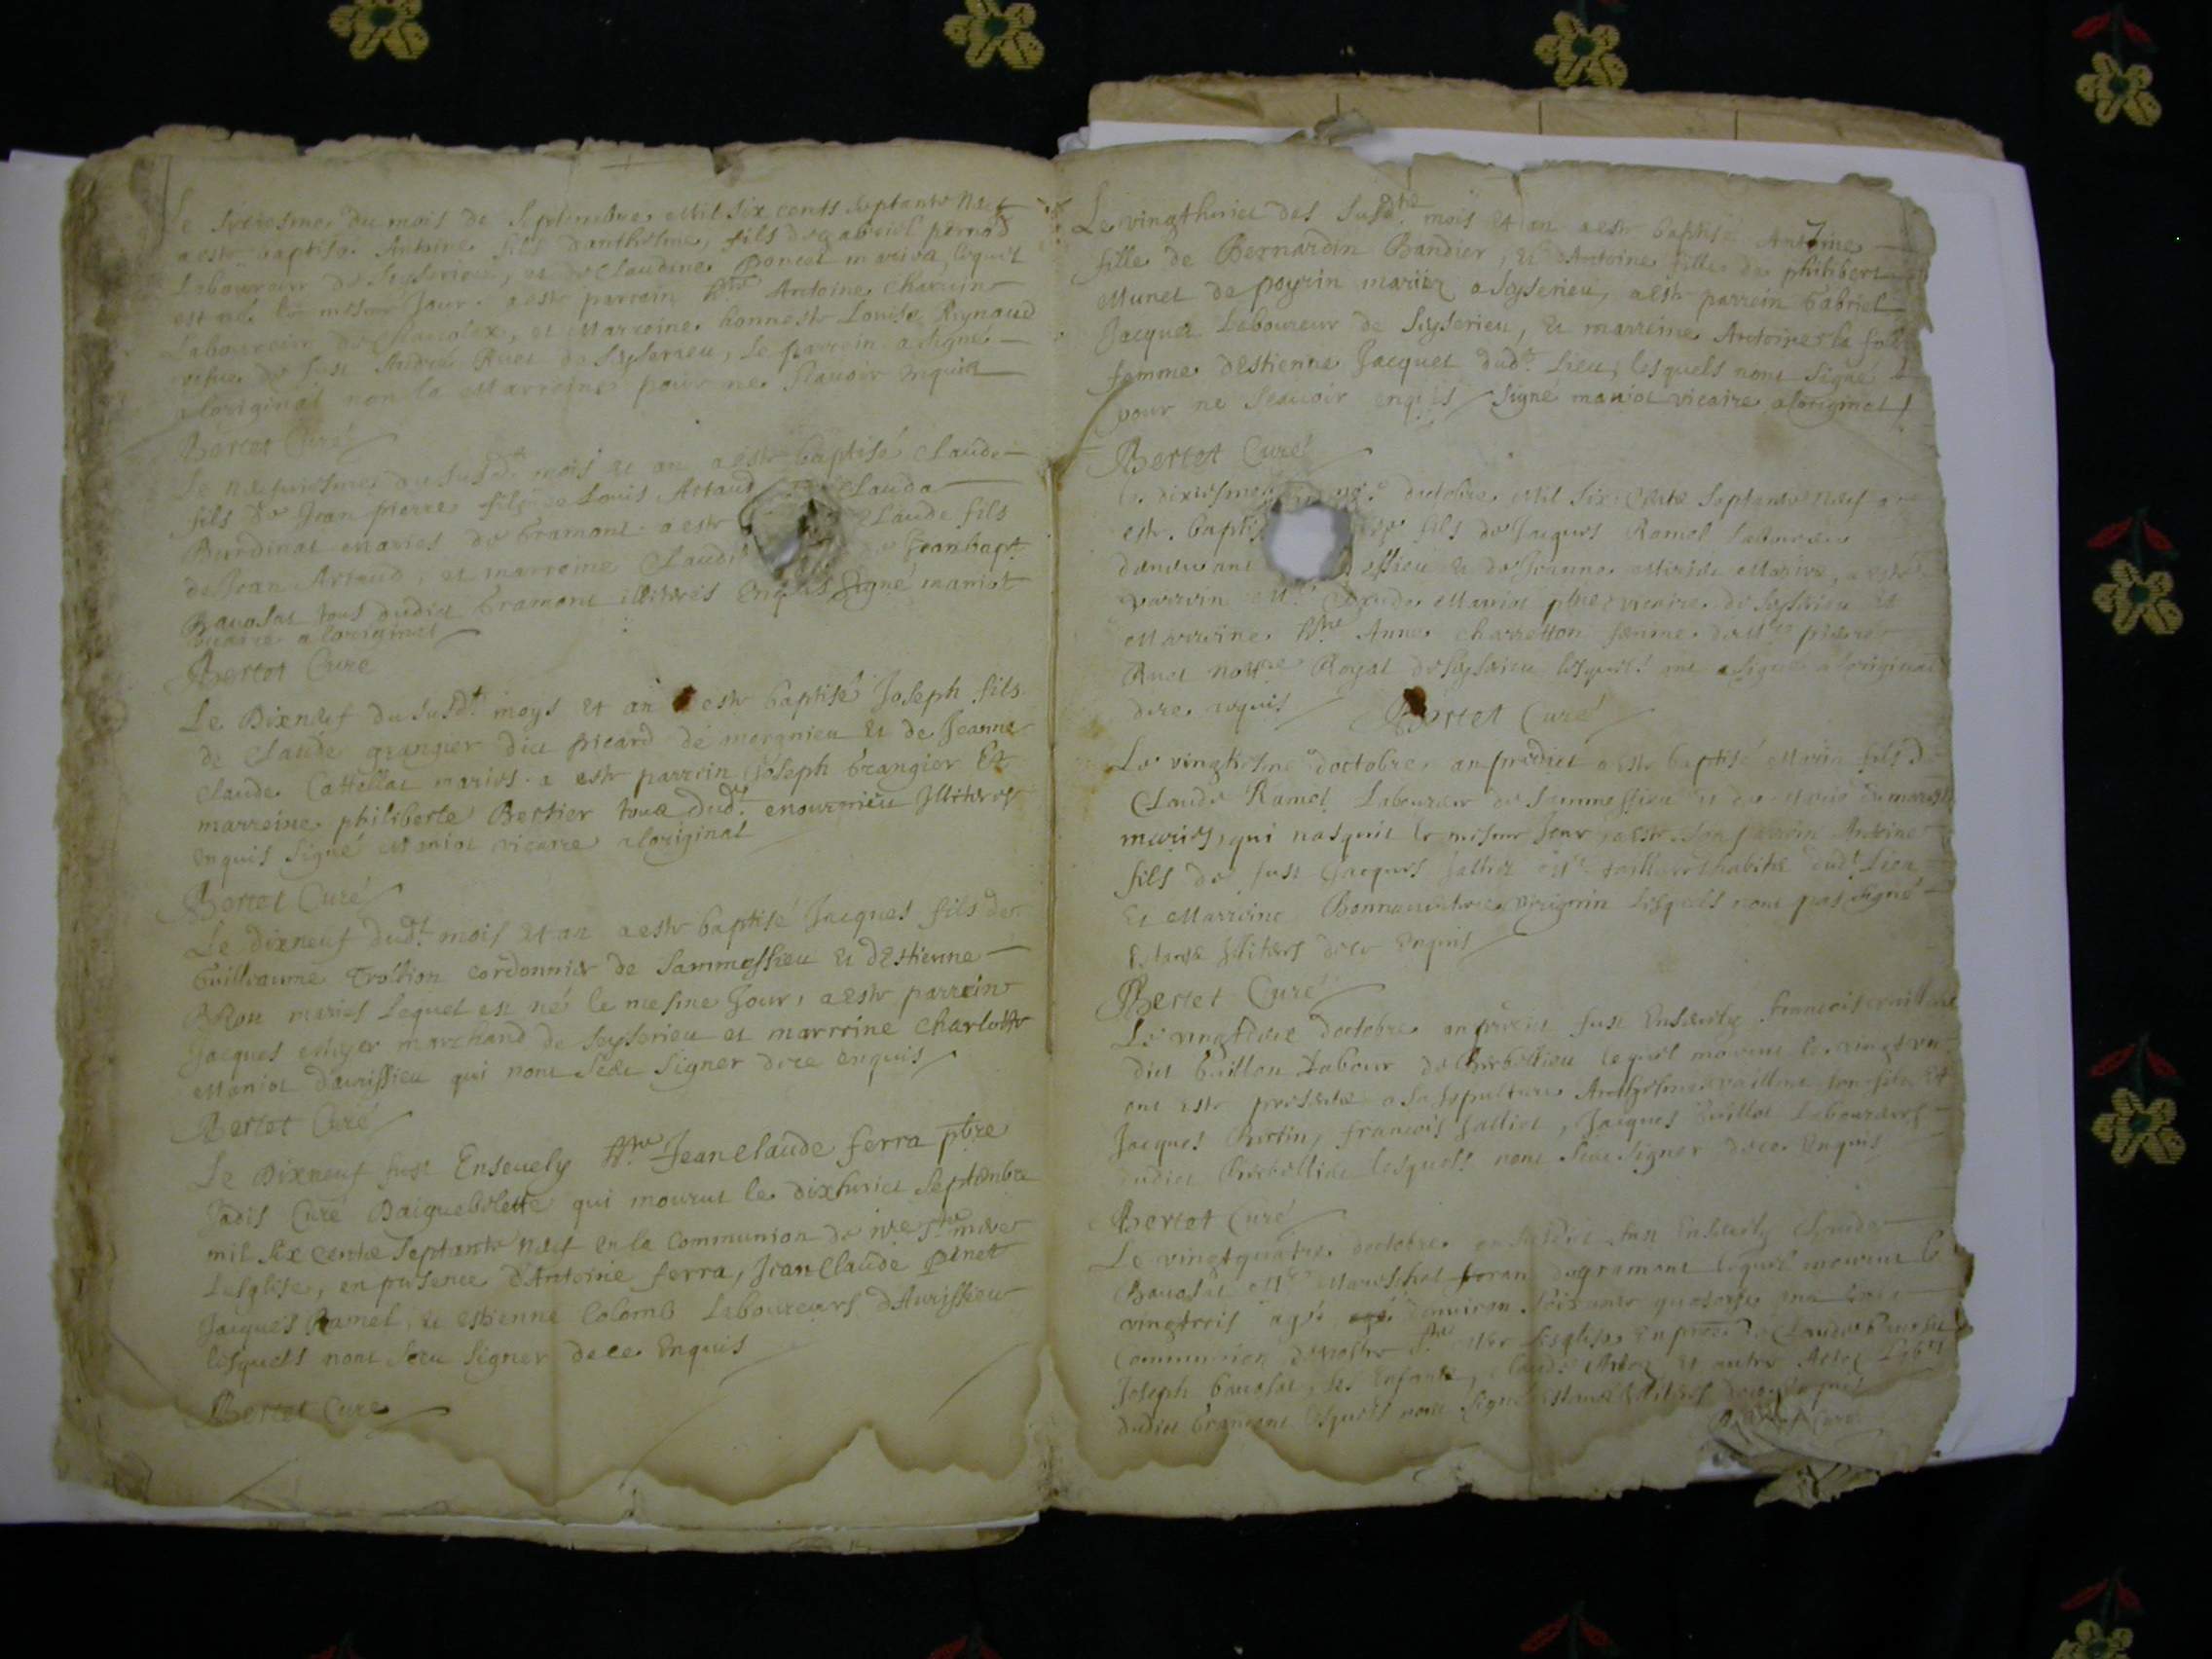 Le du mois de Septembre Mil Six cents Septante Nef
a este baptise Antoine fils d'anthelme, fils de gabriel pernod
Laboureur de Seyserieu, et de Claudine Poncet mariez, lequel
est né le mesme Jour. a este parrain hble Antoine
Laboureur de et Marreine honneste Louise Reynaud
vefue de fust André Ruet de Seyserieu, le parrein a signé
a loriginal non la Marreine pour ne Scauoir Enquise
Bertet Curé
Le du susdt mois et an a este baptisé Claude
fils de Jean pierre fils de Louis Artaud Clauda
Burdinat maries de Gramont a este Claude fils
de Jean Artaud, et marreine Claudi de Jeanbapt
Bauosat tous dudict Gramont illitéres Enquis Signé maniot
vicaire a loriginal
Bertet Curé
Le Dixneuf du susdt moys et an a este baptisé Joseph fils
de Claude grangier dict picard de morgnieu et de Jeanne
Claude Cattellat maries. a este parrein Joseph Grangier Et
marreine philiberte Bertier tous dudt Illitéres
enquis Signé Maniot vicaire a loriginal
Bertet Curé
Le dixneuf dudt mois et an a este baptisé Jacques fils de
Guilliaume Trollion cordonnier de Sammessieu et d'Estienne
maries Lequel est né le mesme Jour, a este parrein
Jacques marchand de Seyserieu et marreine Charlotte
Maniot d'aurissieu qui nont Seeu Signer de ce enquis
Bertet Curé
Le Dixneuf fust Enseuely Jean claude ferra pbre
Jadis Curé Daiguebelette qui mourut le dixhuict Septembre
mil six cents Septante Neuf en la Communion de nre Ste mere
Lesglise, en presence d'Antoine ferra, Jean Claude Pinet
Jacques Ramel, et Estienne Colomb Laboureurs d'Aurissieu
lesquels nont Sceu Signer de ce Enquis
Bertet Curé
Le vingthuict des Susdts mois et an a este baptisé Antoine
fille de Bernardin Bandier, et d'Antoine fille de philibert
Munet de poyrin mariez a Seyserieu, a este parrein Gabriel
Jacquet Laboureur de Seyserieu, et marreine Antoine
femme d'Estienne Jacquet dudt Lieu, lesquels nont Signé
pour ne Scauoir enquis Signé maniot vicaire a loriginal
Bertet Curé
Le dixiesme d'octobre Mil Six Cents Septante Neuf a
este baptis fils de Jacques Ramel Laboureur
demeurant essieu et de Jeanne Mariez, a este
parrein Mre Claude Maniot pbre vicaire de Seyserieu et
Marreine Anne Charretton femme de Mre pierre
Ruet Nottre Royal de Seyserieu lesquels ont Signé a loriginal
de ce requis Bertet Curé
Le vingtiesme d'octobre an predict a este baptisé Marin fils de
Claude Ramel Laboureur de Sammessieu et de Marie
maries, qui nasquit le mesme Jour, a este son parrein Antoine
fils de fust Jacques Jallier Mre tailleur habitt dudt Lieu
Et Marreine Bonnauenture lesquels nont pas signé
Estants Illitéres de ce Enquis
Bertet Curé
Le d'octobre an predict fust Enseuely francois vaillant
dict Guillon Labour de Cherbellieu lequel mourut le vingt vn
ont este presents a Sa Sepulture Anthelme vaillant son fils, Et
Jacques francois Jalliet, Jacques Guillot Laboureurs
dudict lesquels nont Sceu Signer de ce Enquis
Bertet Curé
Le vingtquatre d'octobre an susdict fust Enseuely Claude
Bauosat Mre Mareschal de gramont lequel mourut le
vingttrois agé d'enuiron Soixante quatorze ans En la
Communion de nostre Ste Mere Lesglise En presce de Claude Bauosat
Joseph Bauosat, Ses Enfants, Claude et autre
dudict Gramont lesquels nont Signé estants illitéres de ce requis
Bertet Curé